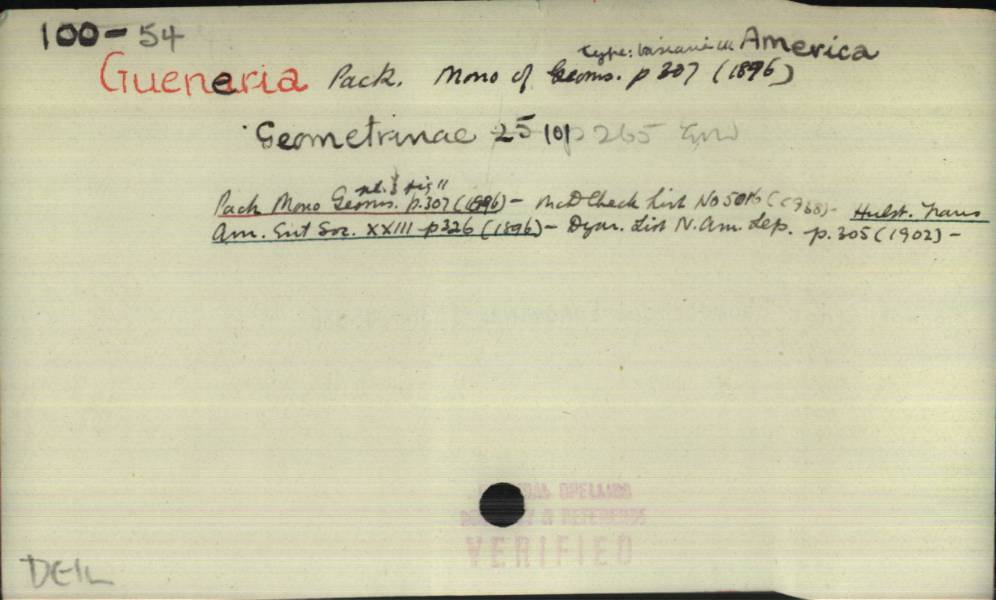 100-54
type: America
Gueneria Pack. Mono of Geoms. p 307 (1896)
Geometrinae 25 101 p 265
pl. fig 11
Pack Mono Geoms. p.307 (1896) - McD Check List No 5016 (1938) - Hulst. Trans
Am. Ent Soc. XXIII p326 (1896) - Dyar. List N. Am. Lep. p. 305 (1902) -
ORIGINAL SPELLING
REFERENCE
VERIFIED
DEL